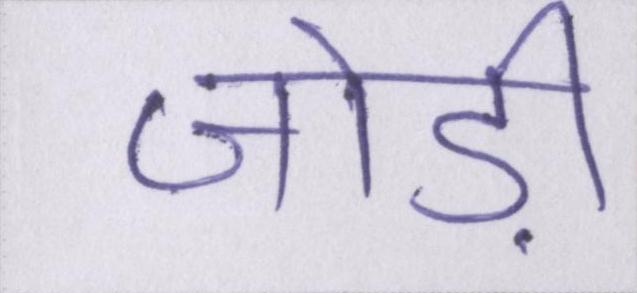 जोड़ी